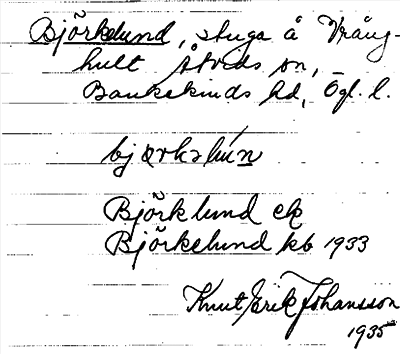 Björkelund, stuga å Vräng-
hult Åtvids sn,
Bankekinds hd, Ögl. l.
bjørkslún
Björklund ek
Björkelund kb 1933
Knut Erik Johansson
1935